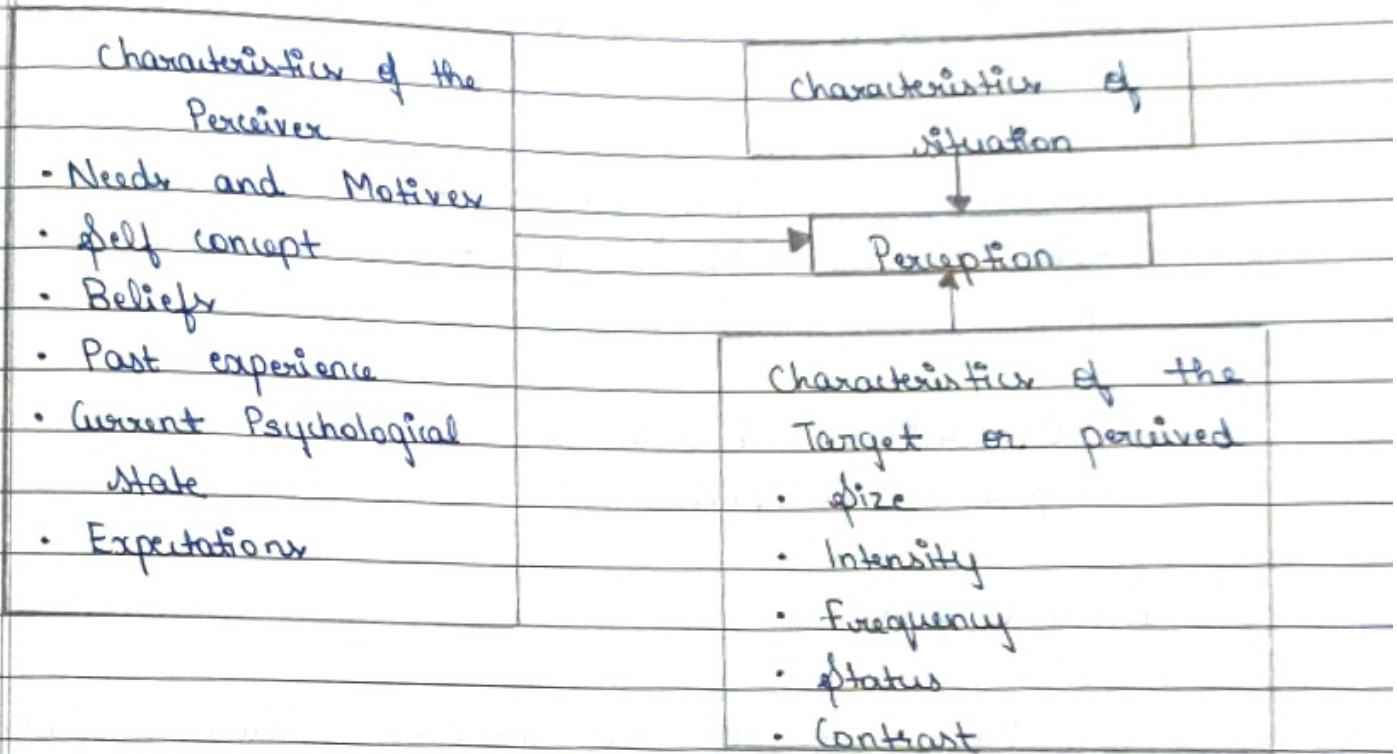 Characteristics of the
Perceiver
• Needs and Motives
• Self concept
• Beliefs
• Past experience
• Current Psychological
state
• Expectations
Characteristics of
situation
Perception
Characteristics of the
Target or perceived
• Size
• Intensity
• Frequency
• Status
• Contrast